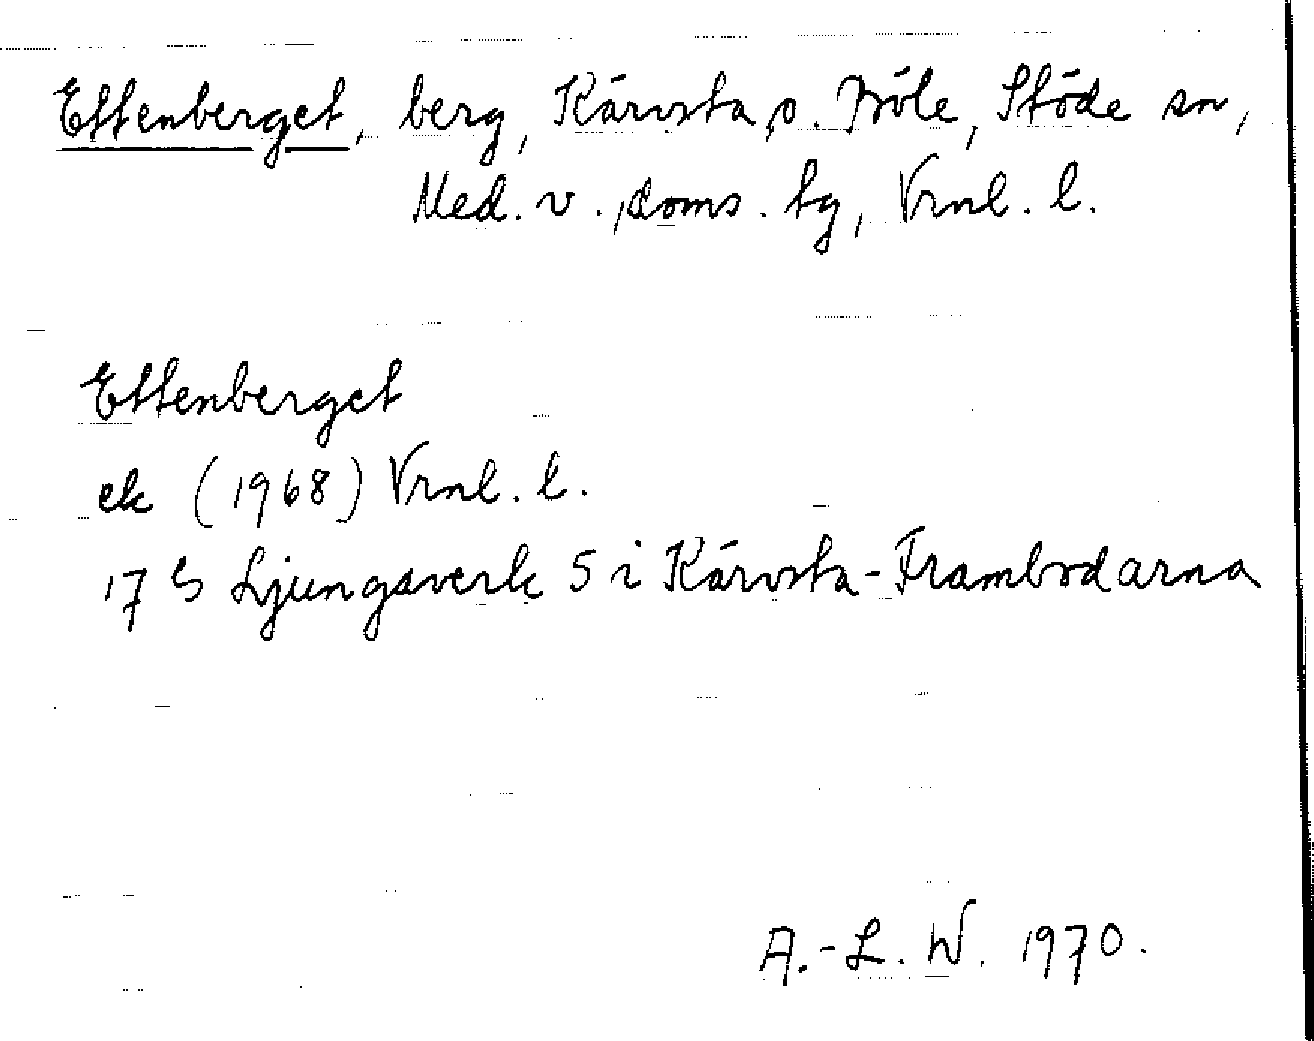 Ettenberget, berg, Kärvsta o. Böle, Stöde sn,
Med. v. doms. tg, Vrnl. l.
Ettenberget
ek (1968) Vrnl. l.
17 G Ljungaverk 5 i Kärvsta-Frambodarna
A.-L. W. 1970.